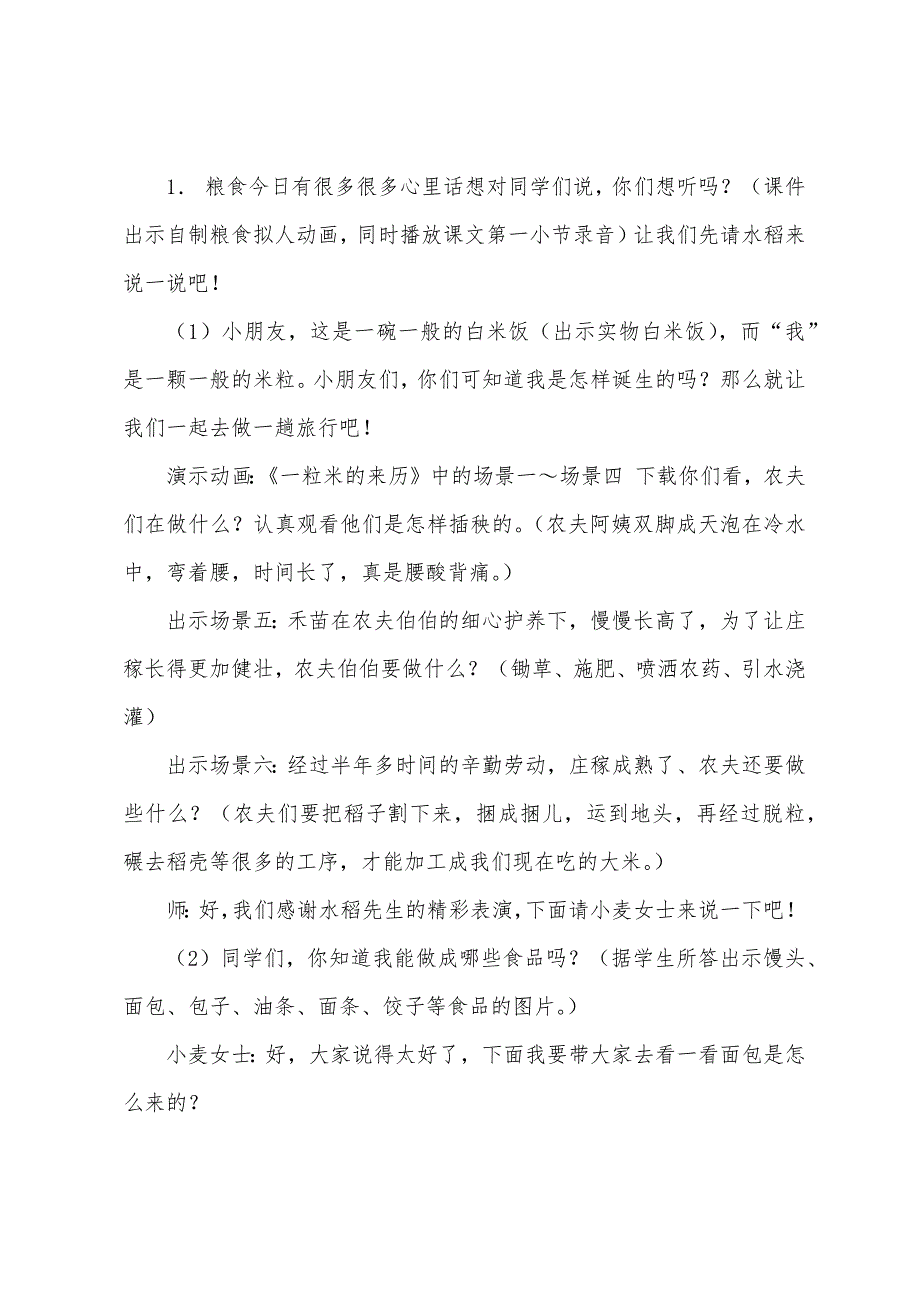 1． 粮食今日有很多很多心里话想对同学们说，你们想听吗？（课件
出示自制粮食拟人动画，同时播放课文第一小节录音）让我们先请水稻来
说一说吧！
（1）小朋友，这是一碗一般的白米饭（出示实物白米饭），而“我”
是一颗一般的米粒。小朋友们，你们可知道我是怎样诞生的吗？那么就让
我们一起去做一趟旅行吧！
演示动画：《一粒米的来历》中的场景一～场景四 下载你们看，农夫
们在做什么？认真观看他们是怎样插秧的。（农夫阿姨双脚成天泡在冷水
中，弯着腰，时间长了，真是腰酸背痛。）
出示场景五：禾苗在农夫伯伯的细心护养下，慢慢长高了，为了让庄
稼长得更加健壮，农夫伯伯要做什么？（锄草、施肥、喷洒农药、引水浇
灌）
出示场景六：经过半年多时间的辛勤劳动，庄稼成熟了、农夫还要做
些什么？（农夫们要把稻子割下来，捆成捆儿，运到地头，再经过脱粒，
碾去稻壳等很多的工序，才能加工成我们现在吃的大米。）
师：好，我们感谢水稻先生的精彩表演，下面请小麦女士来说一下吧！
（2）同学们，你知道我能做成哪些食品吗？（据学生所答出示馒头、
面包、包子、油条、面条、饺子等食品的图片。）
小麦女士：好，大家说得太好了，下面我要带大家去看一看面包是怎
么来的？